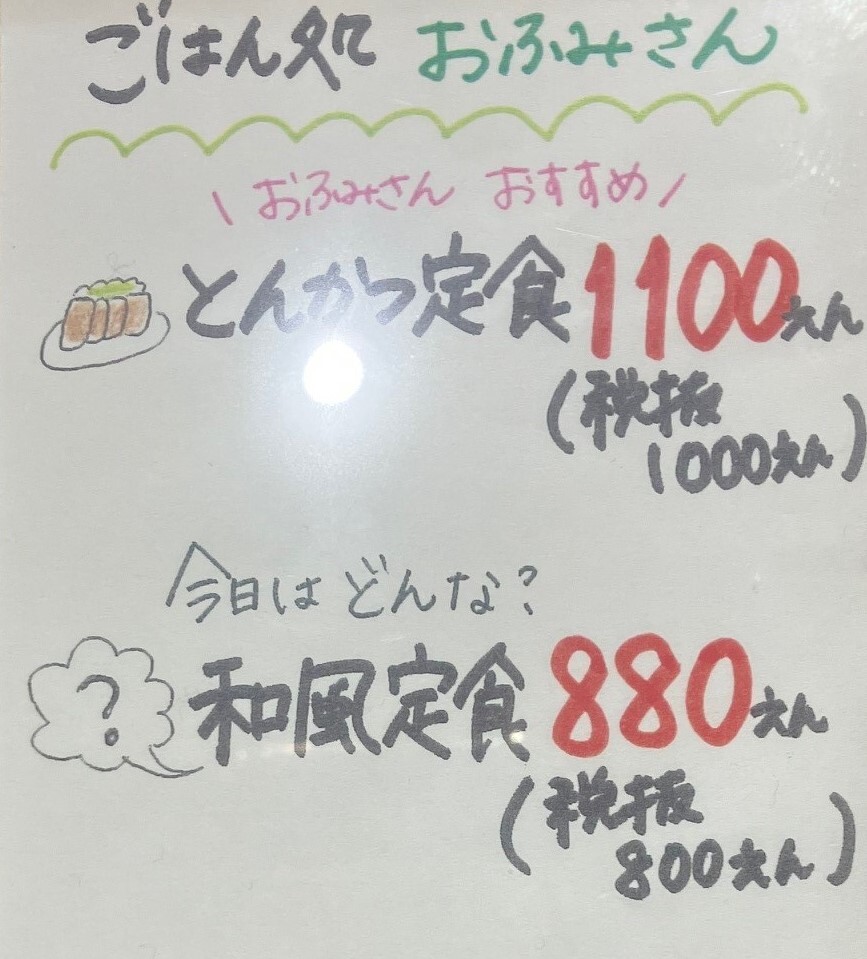 ごはん処 おふみさん
\ おふみさん おすすめ /
とんかつ定食 1100えん
(税抜
1000えん)
今日は どんな?
? 和風定食 880えん
(税抜
800えん)